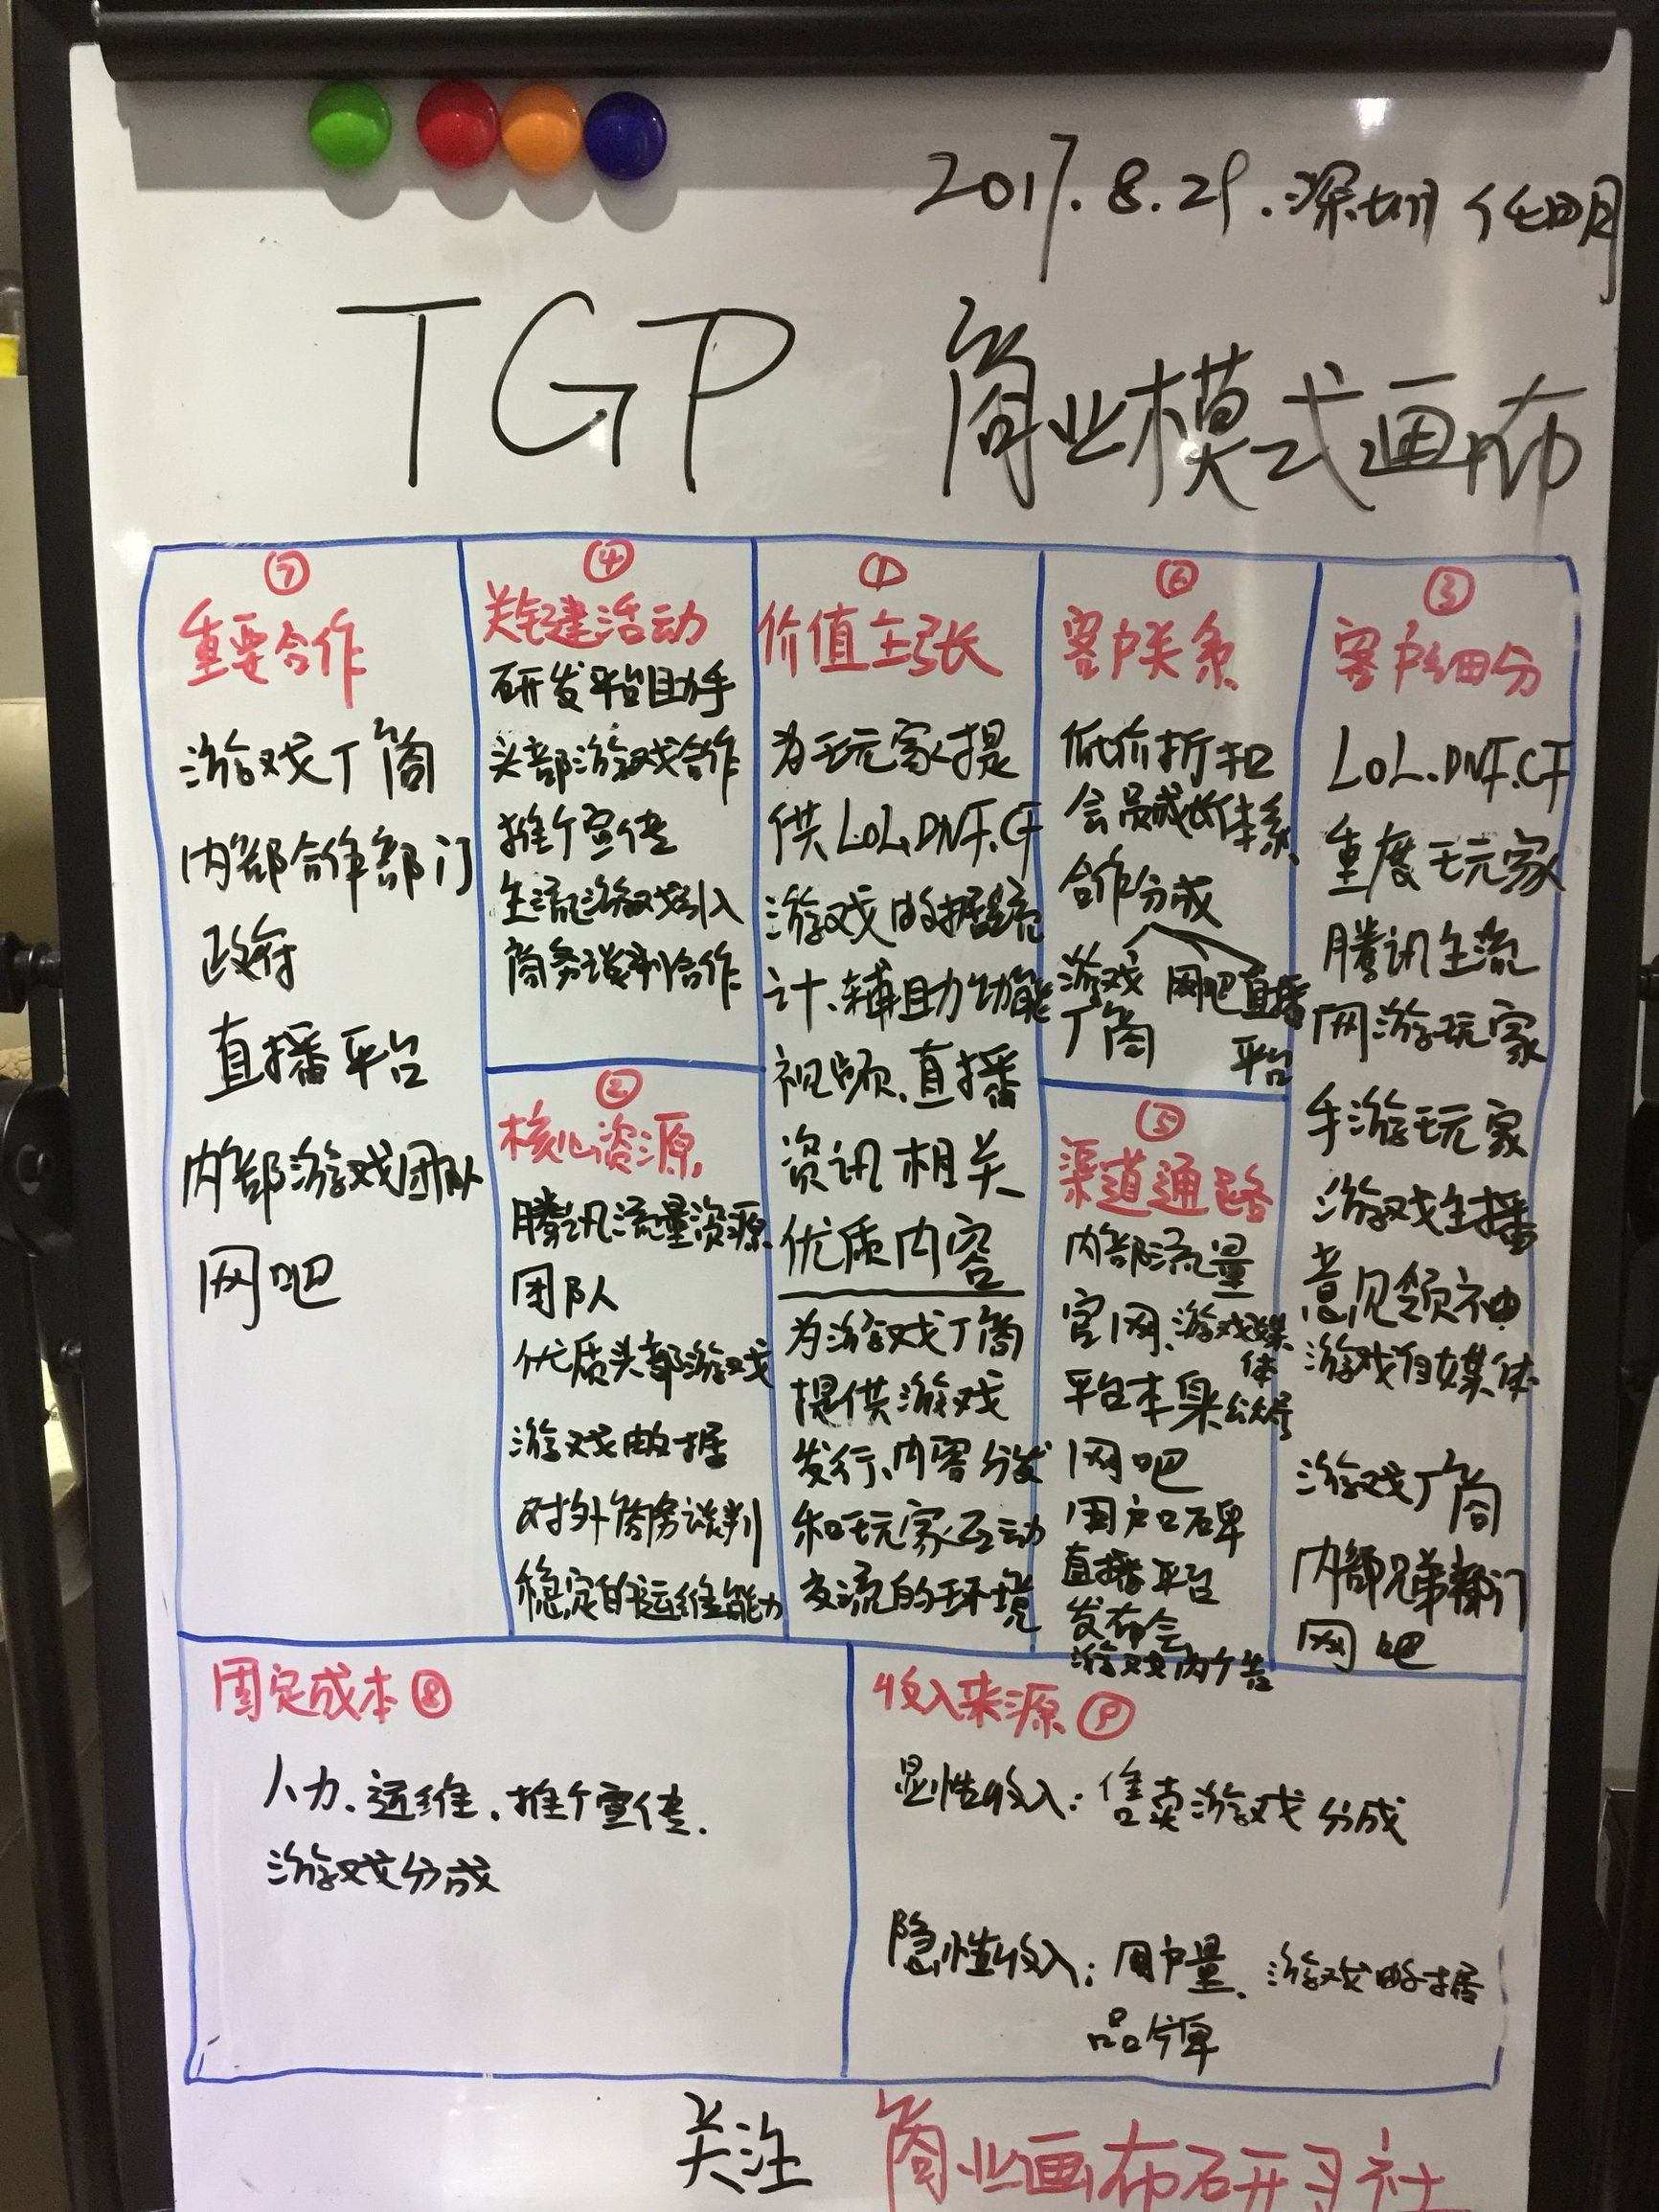 2017.8.29.深圳 任明
TGP 商业模式画布
⑦
重要合作
游戏厂商
内部合作部门
政府
直播平台
内部游戏团队
网吧
④
关键活动
研发平台助手
头部游戏合作
推广宣传
主流游戏引入
商务谈判合作
②
核心资源
腾讯流量资源
团队
优质头部游戏
游戏数据
对外商务谈判
稳定的运维能力
①
价值主张
为玩家提
供LOL.DNF.CF
游戏数据统
计、辅助功能
视频、直播
资讯相关
优质内容
为游戏厂商
提供游戏
发行、内容分发
和玩家互动
交流的环境
⑥
客户关系
低价折扣
会员成长体系
合作分成
游戏 网吧 直播
厂商 平台
⑤
渠道通路
内部流量
官网、游戏媒
体
平台本身 公众号
网吧
用户口碑
直播平台
发布会
游戏内广告
③
客户细分
LOL.DNF.CF
重度玩家
腾讯主流
网游玩家
手游玩家
游戏主播
意见领袖
游戏自媒体
游戏厂商
内部兄弟部门
网吧
固定成本⑧
人力、运维、推广宣传.
游戏分成
收入来源⑨
显性收入：售卖游戏分成
隐性收入：用户量、游戏数据
品牌
关注 商业画布研习社